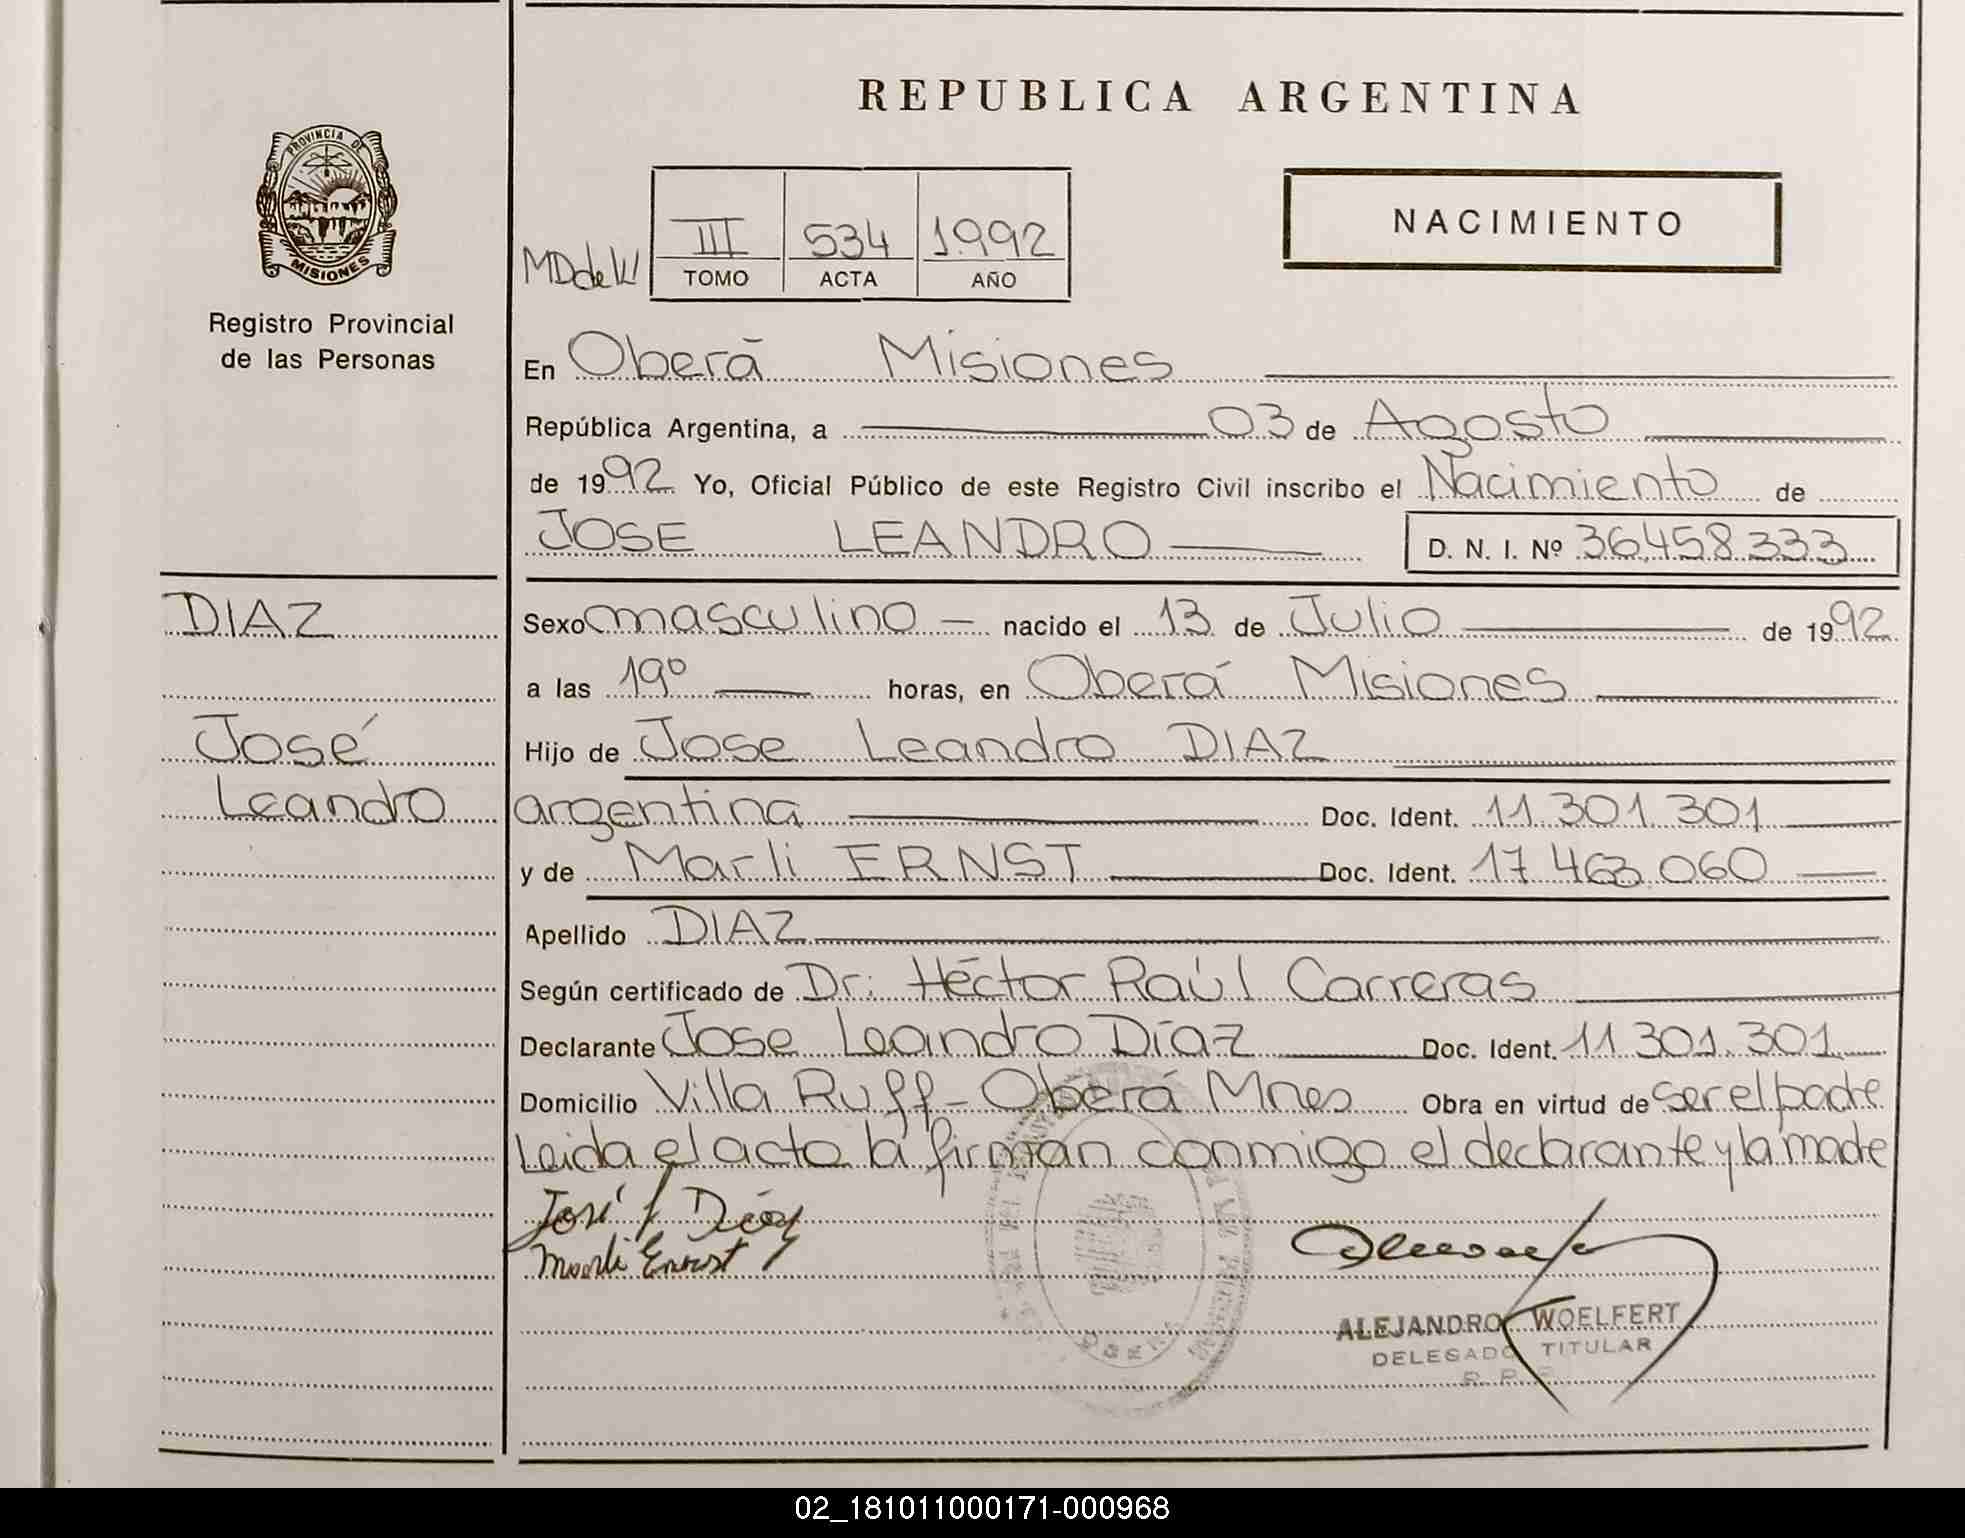 REPUBLICA ARGENTINA
PROVINCIA DE
MISIONES
Registro Provincial
de las Personas
NACIMIENTO
MDdeW
III 534 1992
TOMO ACTA AÑO
En Oberá Misiones
República Argentina, a 03 de Agosto
de 1992 Yo, Oficial Público de este Registro Civil inscribo el Nacimiento de
JOSE LEANDRO D. N. I. Nº 36.458.333
DIAZ
José
Leandro
Sexo masculino nacido el 13 de Julio de 1992
a las 19º horas, en Oberá Misiones
Hijo de Jose Leandro DIAZ
argentina Doc. Ident. 11.301.301
y de Marli ERNST Doc. Ident. 17.463.060
Apellido DIAZ
Según certificado de Dr. Héctor Raúl Carreras
Declarante Jose Leandro Díaz Doc. Ident. 11.301.301
Domicilio Villa Ruff - Oberá Mnes Obra en virtud de ser el padre
Leida el acta la firman conmigo el declarante y la madre
José L Díaz
Marli Ernst
ALEJANDRO WOELFERT
DELEGADO TITULAR
R. P. P.
OBERA
02_181011000171-000968